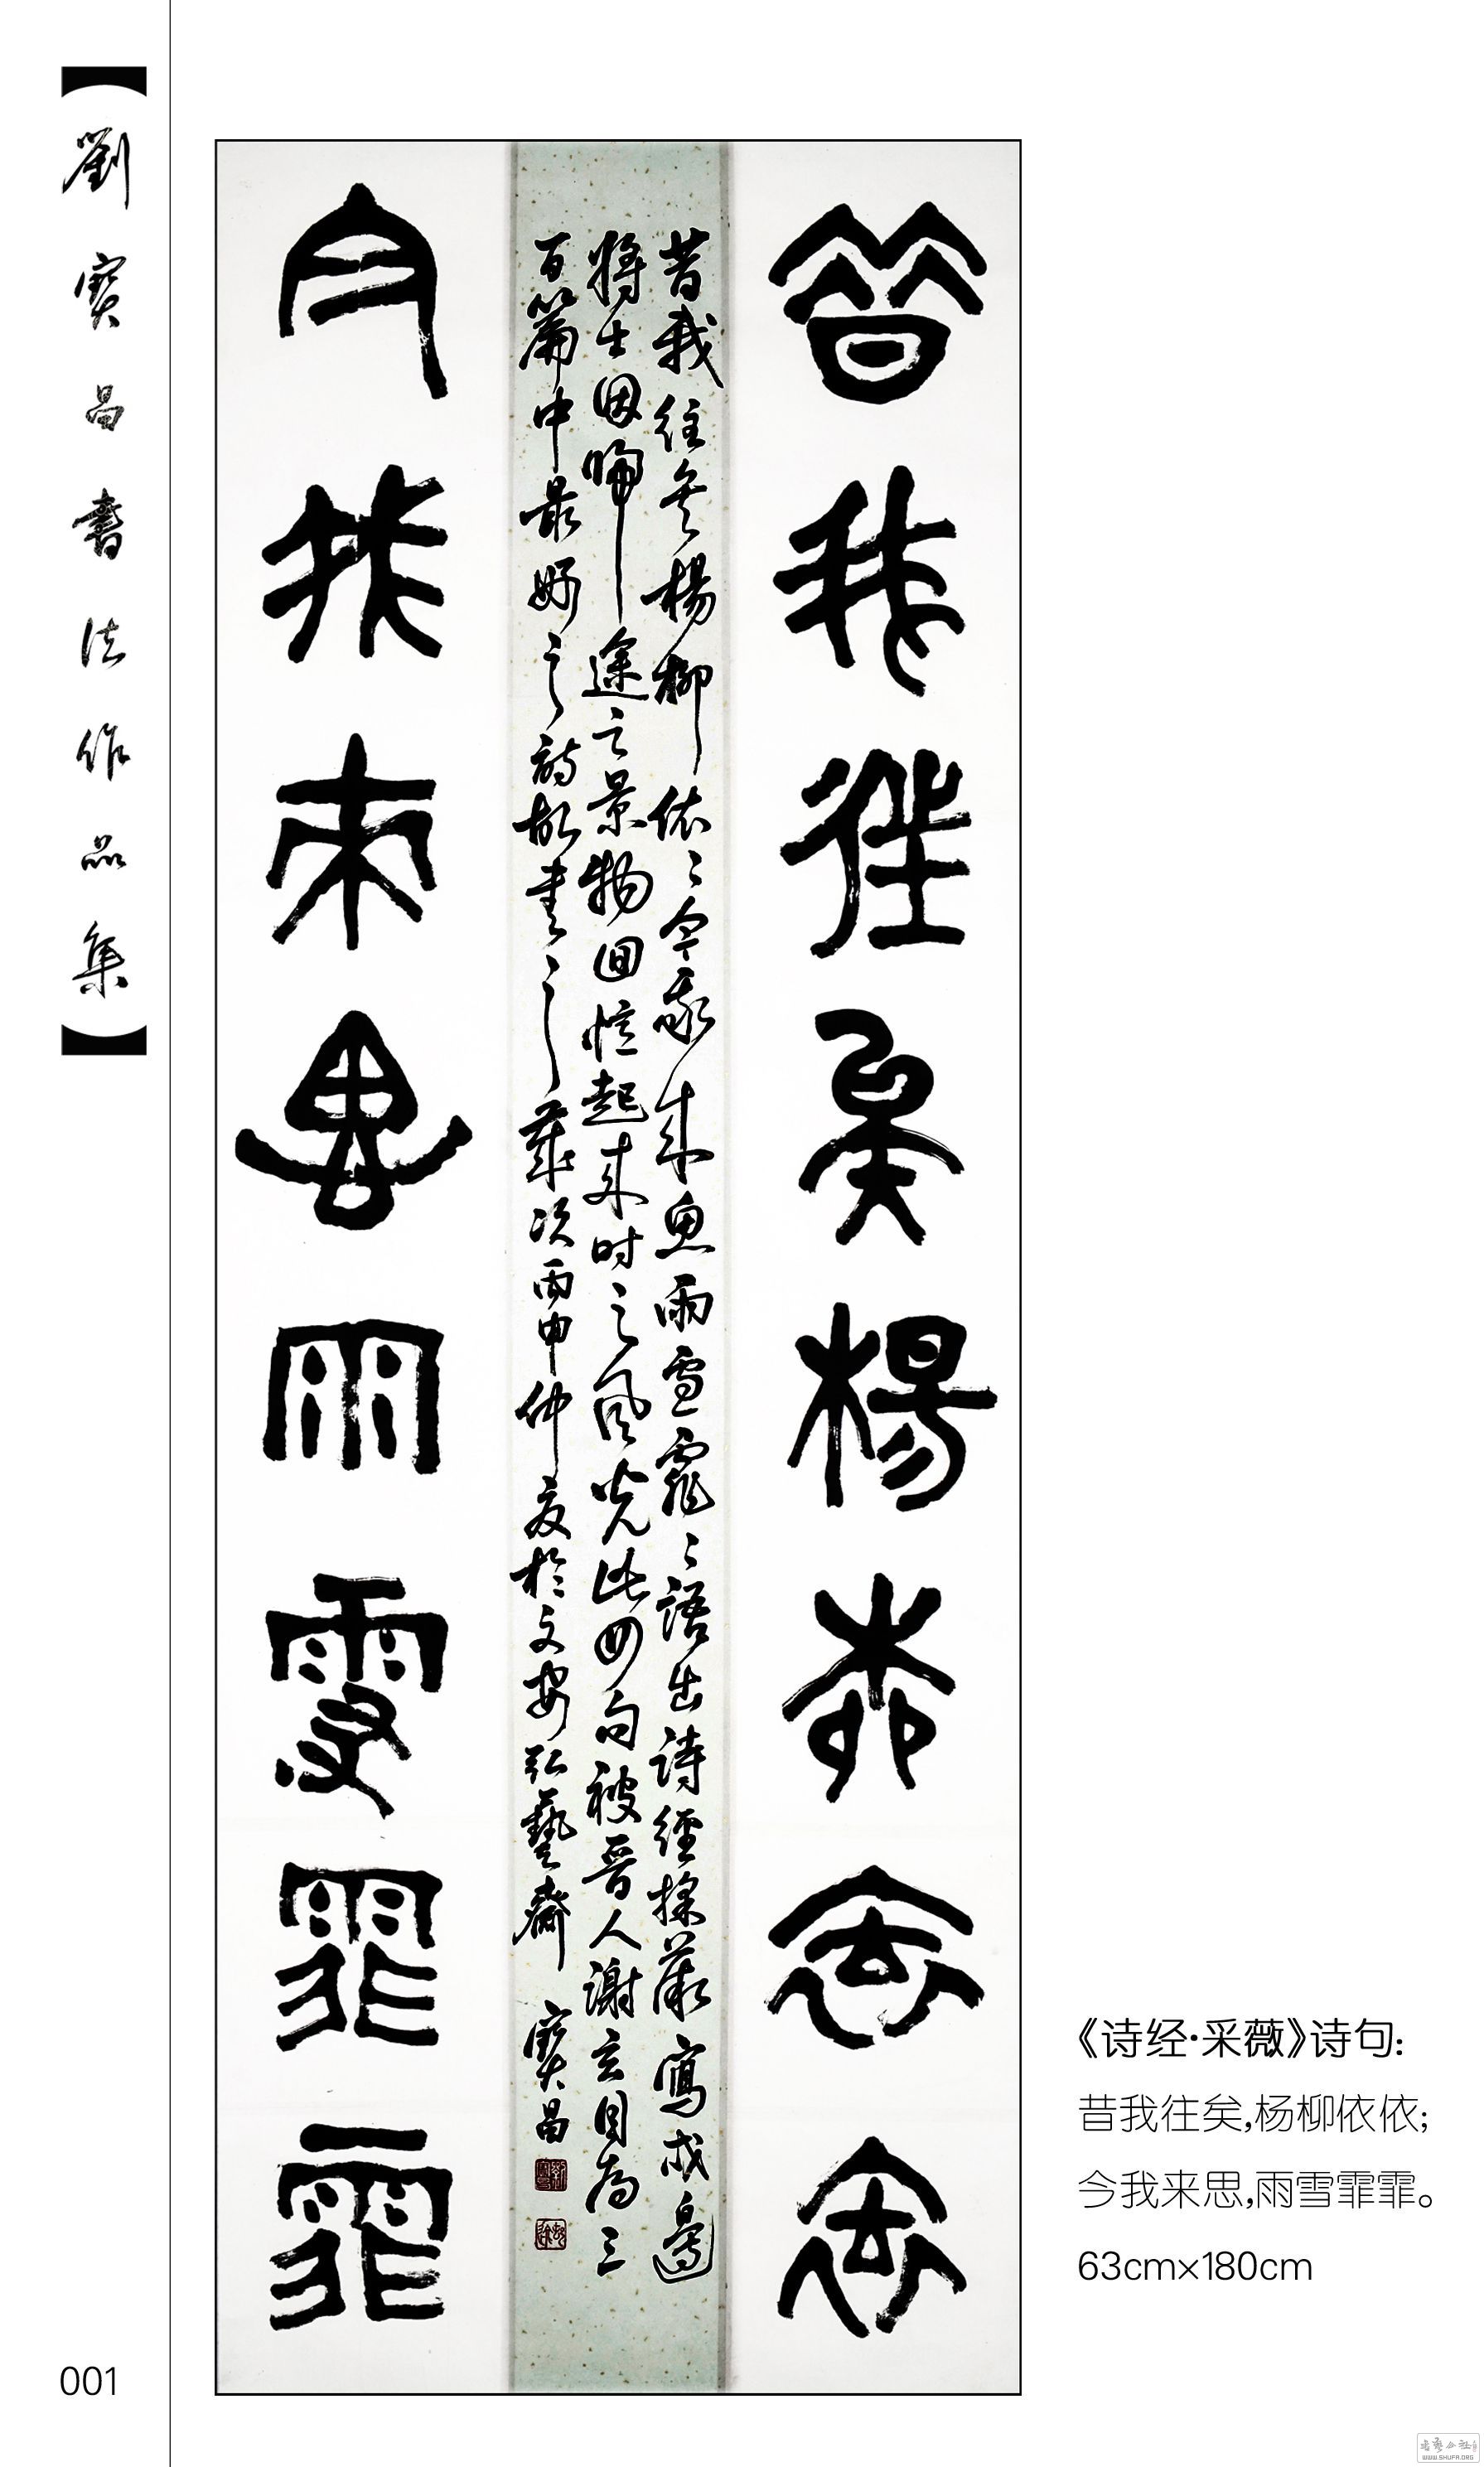 【劉寶昌書法作品集】
昔我往矣楊柳依依
今我來思雨雪霏霏
昔我往矣楊柳依〻今我来思雨雪霏〻語出诗經採薇寫戍邊
将士因歸途之景物回忆起来时之风光此四句被晋人谢玄目为三
百篇中最好之诗故書之歲次丙申仲夏於文安弘藝齋 寶昌
《诗经·采薇》诗句：
昔我往矣，杨柳依依；
今我来思，雨雪霏霏。
63cm×180cm
001
WWW.SHUFA.ORG